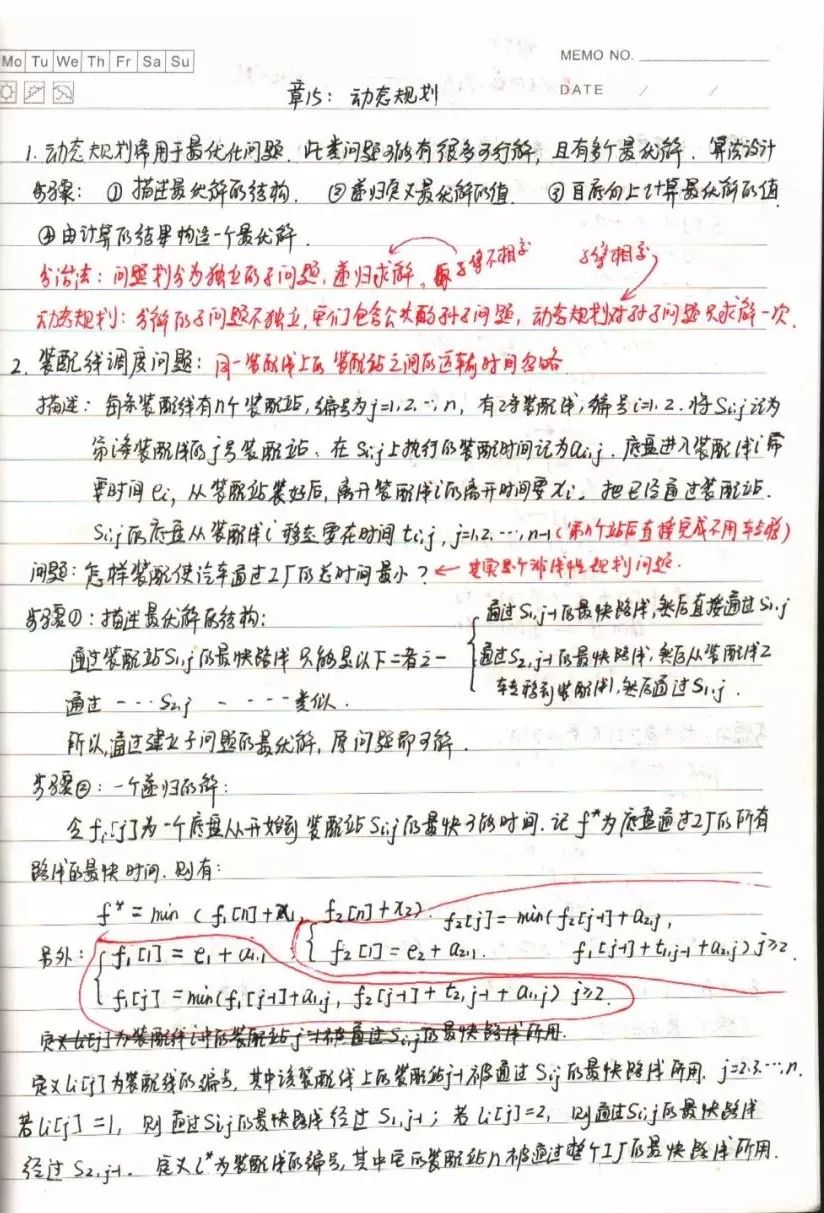 Mo Tu We Th Fr Sa Su
MEMO NO.
DATE / /
章15: 动态规划
1. 动态规划常用于最优化问题. 此类问题可能有很多可行解, 且有多个最优解. 算法设计
步骤: ① 描述最优解的结构. ②递归定义最优解的值. ③ 自底向上计算最优解的值
④由计算的结果构造一个最优解.
分治法: 问题划分为独立的子问题, 递归求解, 子学不相交 子学相交
动态规划: 分解的子问题不独立, 它们包含公共的子子问题, 动态规划对子子问题只求解一次.
2. 装配线调度问题: 同一装配线上的装配站之间的运输时间忽略
描述: 每条装配线有n个装配站, 编号为j=1,2,…,n, 有2条装配线, 编号i=1,2. 将Si,j记为
第i条装配线的j号装配站. 在Si,j上执行的装配时间记为ai,j. 底盘进入装配线i需
要时间ei, 从装配站装好后, 离开装配线i的离开时间要xi. 把已经通过装配站.
Si,j的底盘从装配线i移走要在时间ti,j, j=1,2,…,n-1 (第n个站后直接完成不用转移)
问题: 怎样装配使汽车通过工厂的总时间最小? ← 其实是个非线性规划问题.
步骤①: 描述最优解的结构:
通过装配站S1,j的最快路线只能是以下二者之一 { 通过S1,j-1的最快路线, 然后直接通过S1,j
通过S2,j-1的最快路线, 然后从装配线2
转移到装配线1, 然后通过S1,j.
通过 --- S2,j - --- 类似.
所以, 通过建立子问题的最优解, 原问题即可解.
步骤②: 一个递归的解:
令fi[j]为一个底盘从开始到装配站Si,j的最快可能时间. 记f*为底盘通过工厂的所有
路线的最快时间. 则有:
f* = min (f1[n]+x1, f2[n]+x2). f2[j]=min(f2[j-1]+a2,j,
另外: { f1[1] = e1 + a1,1 { f2[1] = e2 + a2,1. f1[j-1]+t1,j-1+a2,j) j≥2
f1[j] = min(f1[j-1]+a1,j, f2[j-1]+t2,j-1+a1,j) j≥2
定义li[j]为装配线i中的装配站j-1被通过Si,j的最快路线所用.
定义li[j]为装配线的编号, 其中该装配线上的装配站j-1被通过Si,j的最快路线所用. j=2,3,…,n.
若li[j]=1, 则通过Si,j的最快路线经过S1,j-1; 若li[j]=2, 则通过Si,j的最快路线
经过S2,j-1. 定义l*为装配线的编号, 其中它的装配站n被通过整个工厂的最快路线所用.